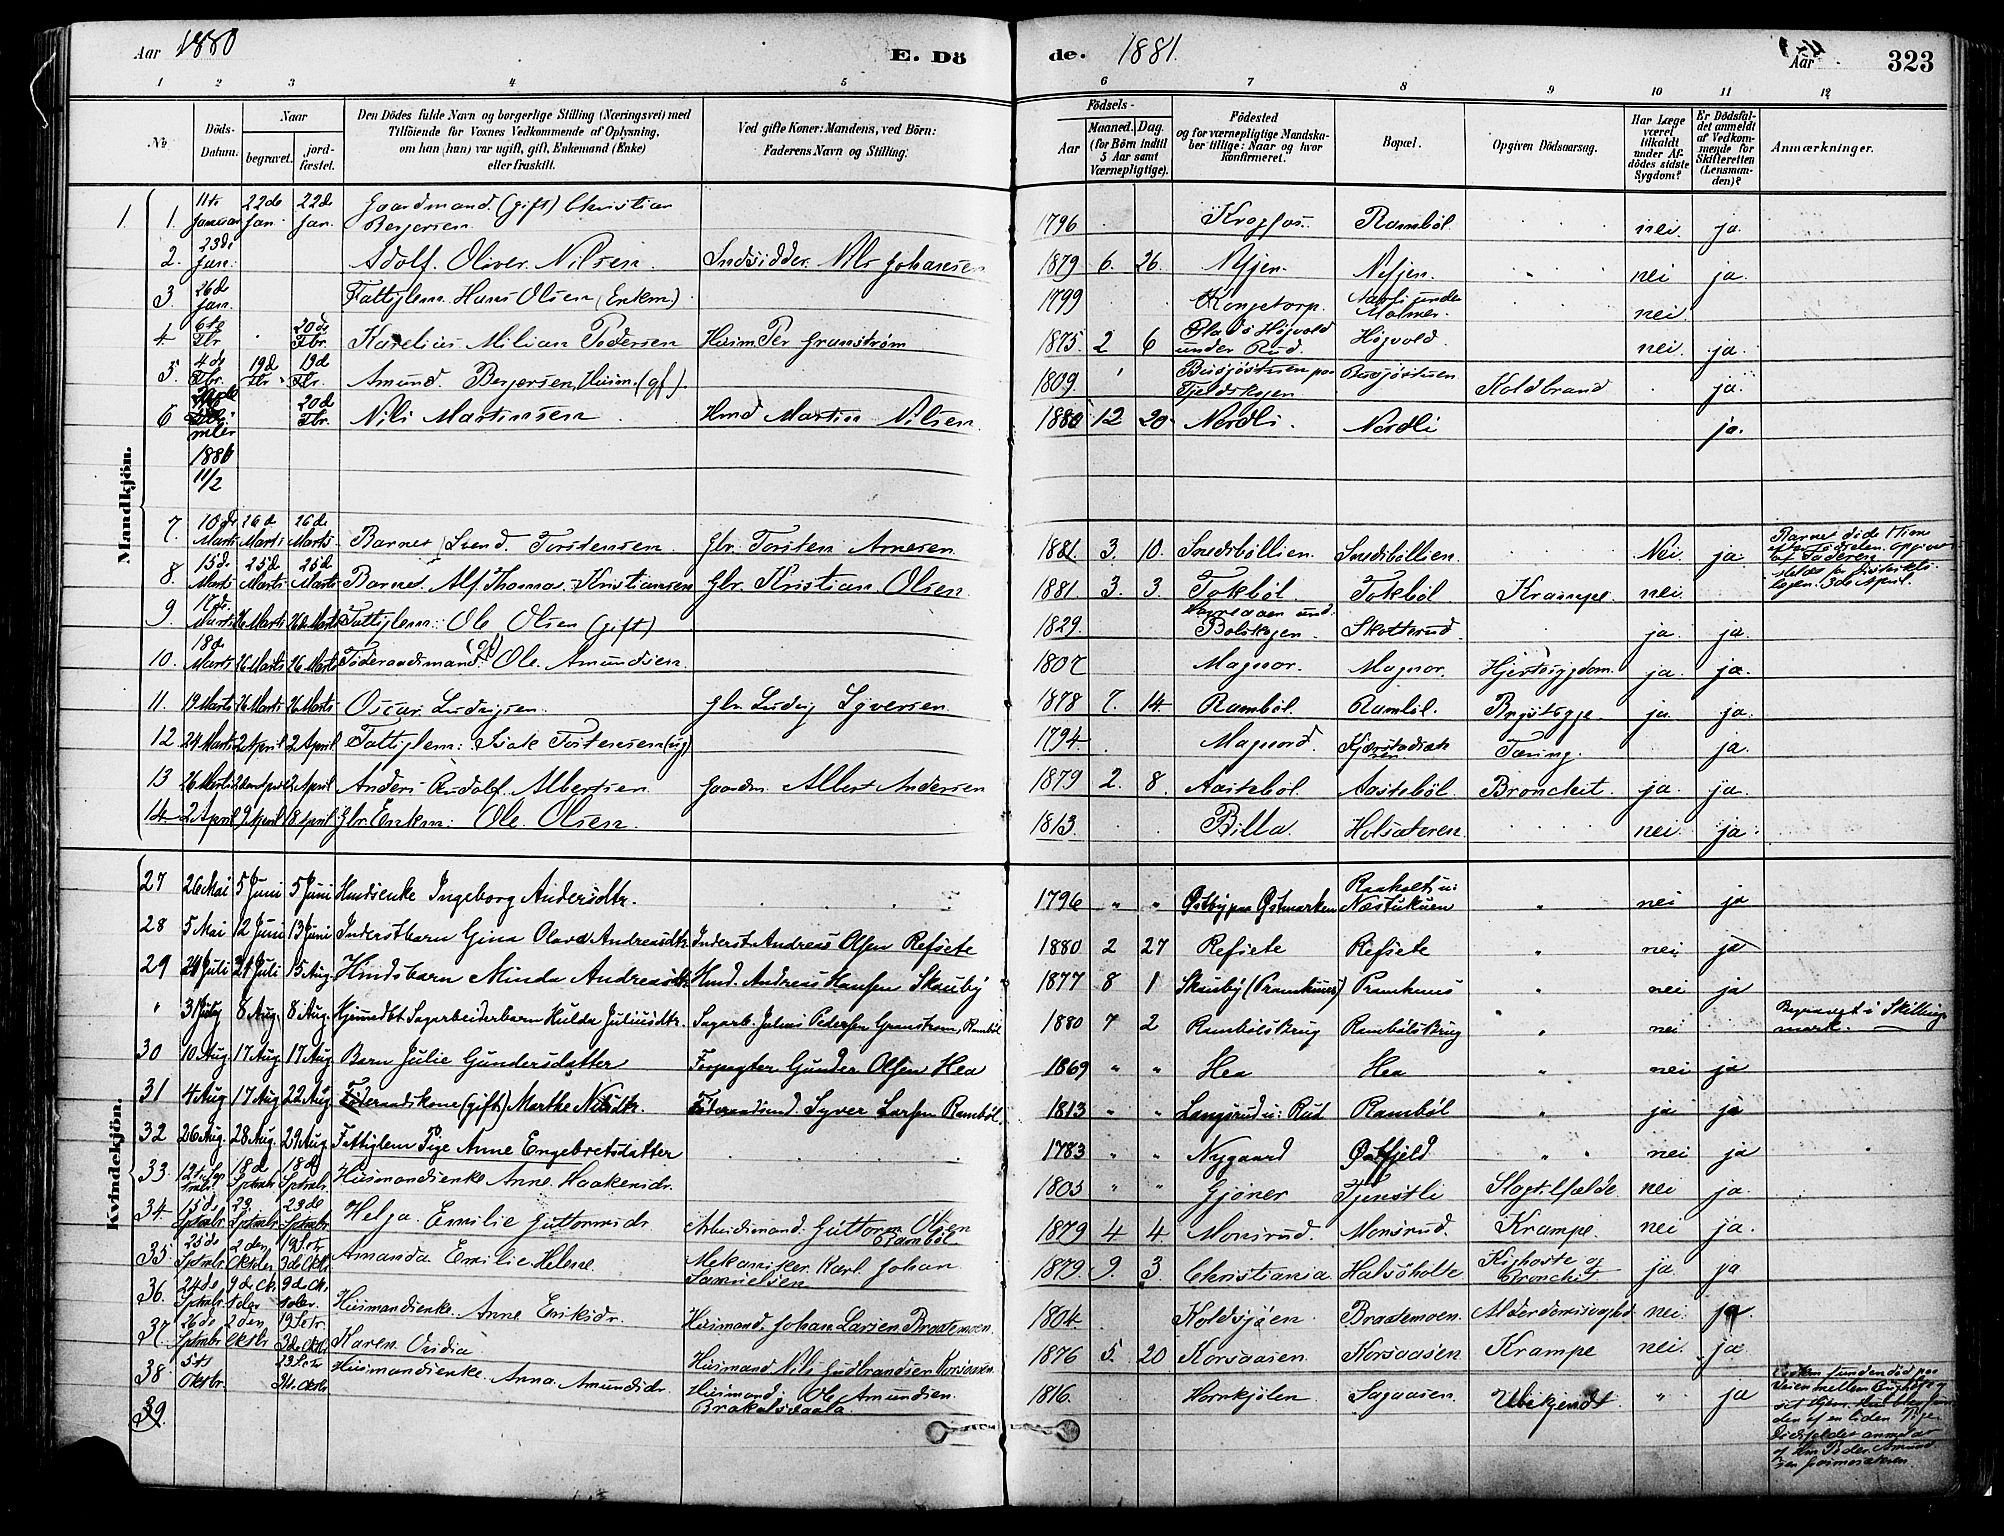 Aar 1880
E. Dö
de.
1881.
Aar
323
1 2 3 4 5 6 7 8 9 10 11 12
No
Döds-Datum.
Naar
begravet.
jord-fæstet.
Den Dödes fulde Navn og borgerlige Stilling (Næringsvei) med
Tilföiende for Voxnes Vedkommende af Oplysning,
om han (hun) var ugift, gift, Enkemand (Enke)
eller fraskilt.
Ved gifte Koner: Mandens, ved Börn:
Faderens Navn og Stilling.
Födsels-
Aar
Maaned. Dag.
(for Börn indtil
5 Aar samt
Værnepligtige).
Födested
og for værnepligtige Mandska-
ber tillige: Naar og hvor
konfirmeret.
Bopæl.
Opgiven Dödsaarsag.
Har Læge
været
tilkaldt
under Af-
dödes sidste
Sygdom?
Er Dödsfal-
det anmeldt
af Vedkom-
mende for
Skifteretten
(Lensman-
den)?
Anmærkninger.
Mandkjön.
1. 11te Januar 22de Jan. 22de Jan. Gaardmand (gift) Christian Berjersen 1796 Ramböl nei. ja.
2. 23de Jan. Adolf Oliver Nilsen. Indsidder Nils Johansen 1879 6. 26 nei ja.
3 26de Jan. Fattiglem Hans Olsen (Enkm) 1799 Kongetorp. under Malmer. nei.
4. 6te Fbr 20de Fbr. Karelius Milian Pedersen Husm Per Granström 1875 2 6 Plads Högvold under Rud. Högvold nei. ja.
5. 4de Fbr. 19d Fbr. 19d Fbr. Amund Berjersen, Husm. (gf). 1809. Busjöstuen paa Fjeldskogen Busjöstuen Koldbrand ja.
6 1880 11/2 20d Fbr. Nils Martinsen Hmd Martin Nilsen. 1880 12 20 Nordli. Nordli ja.
7. 10de Marts 26de Marts 26de Marts. Barnet Svend Torstensen. Gbr. Torsten Arnesen 1881. 3. 10. Smedsböllien. Smedsböllien. Nei. ja. Barnet döde Faderen
8. 15d. Marts 25d Marts 25d Marts Barnet Alf Thomas Kristiansen Gbr. Kristian Olsen 1881. 3. 3. Tokböl. Tokböl Krampe. nei. 3de April.
9. 17d. Marts 26 Marts 26d Marts Fattiglem: Ole Olsen (gift) 1829. und. Bolskogen. Skotterud. ja. ja.
10. 18d Marts 26 Marts 26 Marts Föderaadsmand (gf) Ole Amundsen. 1807 Magnor. Magnor. Hjertesygdom. ja. ja.
11. 19 Marts 26 Marts 26 Marts Oscar Ludvigsen. Gbr Ludvig Syversen 1878 7. 14. Ramböl. Ramböl. ja. ja.
12. 24 Marts 2 April 2 April Fattiglem: Isak Torstensen (ug). 1794. Magnord. Tæring. ja.
13 26 Marts 2 April Anders Rudolf Albertsen Gaardm. Albert Andersen 1879 2. 8. Aasteböl. Aasteböl. Bronchit. ja. ja.
14. 2 April 9 April 18 April Gbr. Enkm: Ole Olsen. 1813. Billa. Holsæteren nei. ja.
Kvindekjön.
27 26 Mai 5 Juni 5 Juni Hmdsenke Ingeborg Andersdtr. 1796 " " Østby paa Østmarken Raaholt u: Næstukuen " nei ja
28 5 Mai 12 Juni 13 Juni Inderstbarn Gina Olava Andreasdtr. Inderst Andreas Olsen Refsete 1880 2 27 Refsete Refsete " nei. ja
29 Juli 21 Juli 15 Aug. Hmdsbarn Minda Andreasdtr. Hmd. Andreas Hansen Skauby 1877 8 1 Skauby (Pramhuus) Pramhuus " nei ja
" 31 July 8 Aug. 8 Aug. Hjemmedöbt Sagarbeiderbarn Hulda Juliusdtr. Sagarb. Julius Pedersen Granstrøm, Ramböl 1880 7 2 Rambölsbrug Rambölsbrug " nei Begravet i Skillingmark.
30 10 Aug 17 Aug 17 Aug Barn Julie Gundersdatter Forpagter Gunder Olsen Hea 1869 " " Hea Hea " nei ja
31 4 Aug 17 Aug 22 Aug Föderaadskone (gift) Marthe Nilsdtr. Föderaadsmd. Syver Larsen Ramböl. 1813 " " Langsrud u: Rud Ramböl " ja ja
32 26 Aug. 28 Aug. 29 Aug. Fattiglem Pige Anne Engebretsdatter 1783 " " Nygaard " " nei ja
33. 12te Septmbr 18d Sptmbr 18d Sptmbr. Husmandsenke Anne Haakensdr. 1805 " " Gjöner Tjenstli Slagtilfælde nei ja.
34. 15d Sptmbr 23 Sptmbr 23de Sptmbr Helga Emilie Guttormsdr. Arbeidsmand. Guttorm Olsen Ramböl 1879 4 4 Monsrud. Monsrud. Krampe. nei ja.
35. 25de Sptmbr. 2den Oktober 3de Oktr. Amanda Emilie Helene. Mekaniker Karl Johan Samuelsen 1879 9. 3 Christiania Halsöholte Kighoste og Bronchit ja ja
36. 24de Sptmbr 9de Oktober. 9de Oktober. Husmandsenke. Anne Eriksdr. Husmand. Johan Larsen Braatemoen. 1804. Koldsjöen Braatemoen. Alderdomssvaghed nei ja
37. 26de Sptmbr 2den Oktbr 3de Oktbr Karen Ovidia Husmand Nils Gudbrandsen Korsaasen. 1876 5. 20 Korsaasen. Korsaasen Krampe nei. ja
38 5te Oktbr. Husmandsenke. Anna Amundsdr. Husmand. Ole Amundsen Brakalssaata. 1816. Hornkjölen Sagaasen Ubekjendt " ja funden död paa Veien mellem
39.